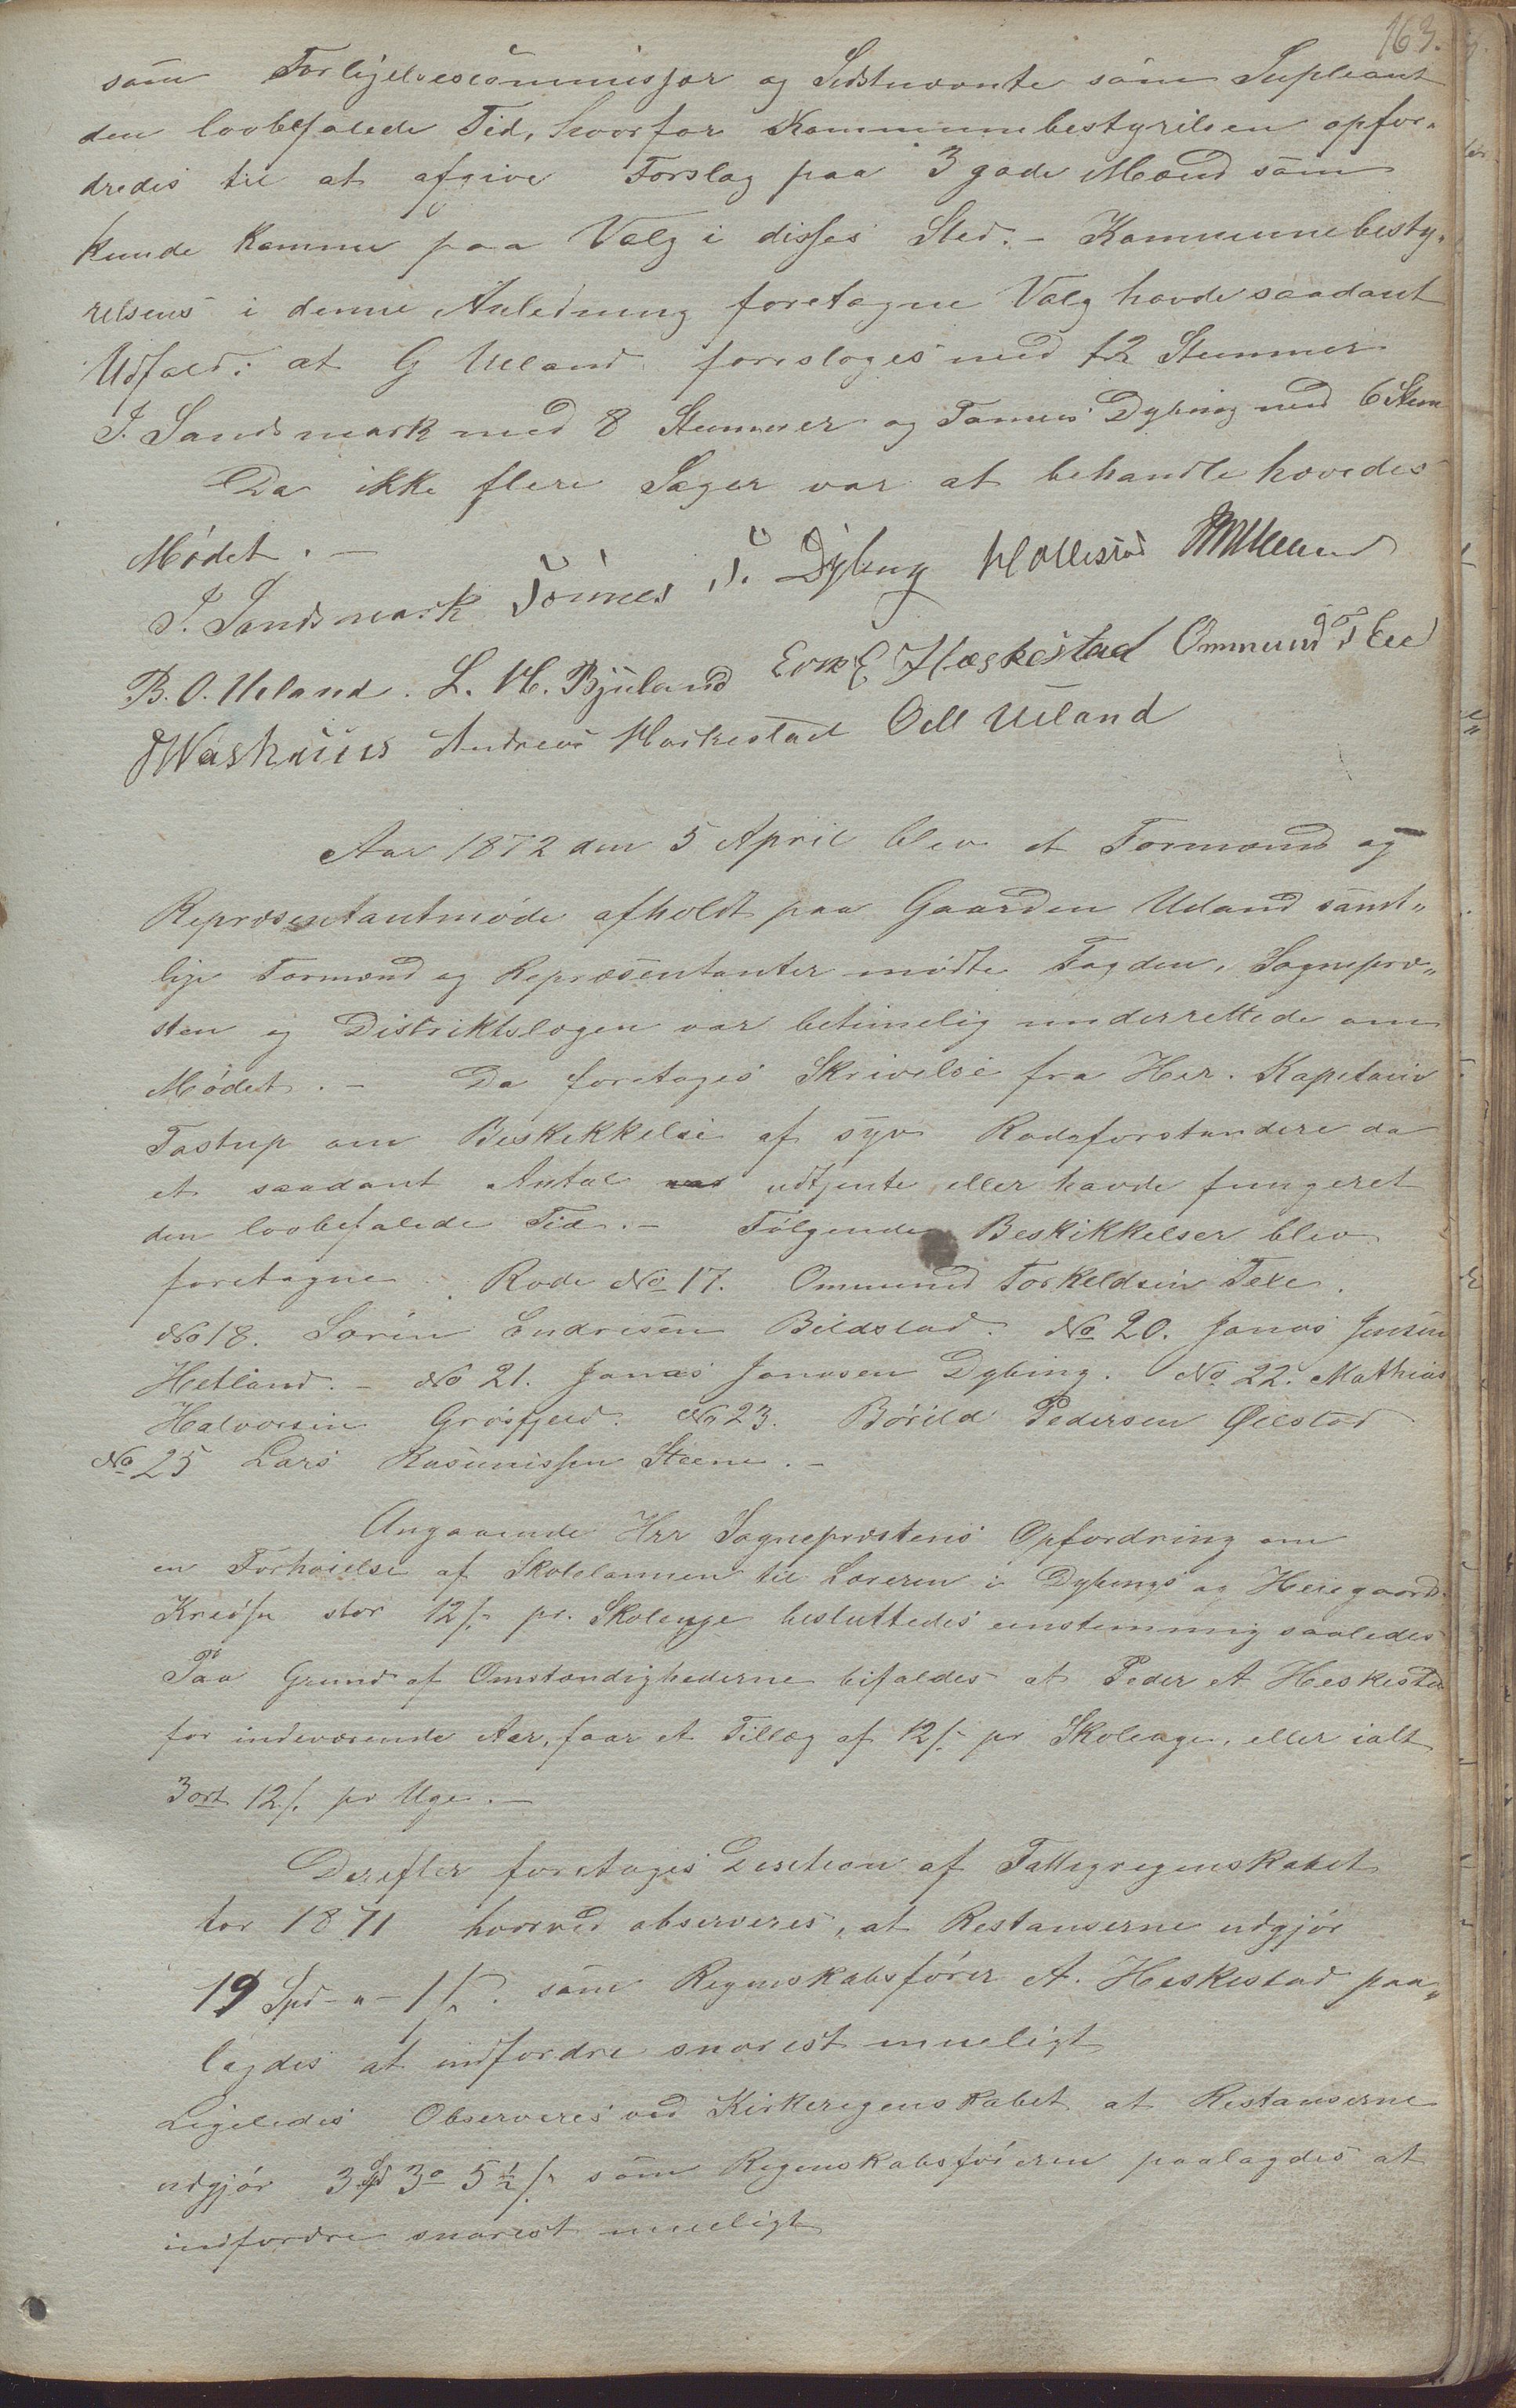 163.
som Forligelsescommissær og Sidstnævnte som Supleant
den lovbefalede Tid, hvorfor Kommunebestyrelsen opfor-
dredes til at afgive Forslag paa 3 gode Mænd som
kunde komme paa Valg i disses Sted. - Kommunebesty-
relsens i denne Anledning foretagne Valg havde saadant
Udfald: at G Ueland foresloges med 12 Stemmer
J. Sandsmark med 8 Stemmer og Tønnes Dybing med 6 Stem
Da ikke flere Sager var at behandle hævedes
Mødet. -
J. Sandsmark Tönnes T. Dybing
B. O. Ueland. L. H. Bjuland E. Hæskestad Ommund T Eee
Andreas Heskestad Odd Ueland
Aar 1872 den 5 April blev et Formænd og
Repræsentantmøde afholdt paa Gaarden Ueland samt-
lige Formænd og Repræsentanter mødte Fogden, Sognepræ-
sten og Distriktslægen var betimelig underrettede om
Mødet. - Da foretoges Skrivelse fra Her. Kapetain
Tostrup om Beskikkelse af syv Rodeforstandere da
et saadant Antal var udtjente eller havde fungeret
den lovbefalede Tid. - Følgende Beskikkelser blev
foretagne. Rode No 17. Ommund Torkeldsen
No 18. Sørin Endresen Bildstad. No 20. Jonas Jensen
Hetland. - No 21. Jonas Jonasen Dybing. No 22. Mathias
Halvorsen Grøsfjeld. No 23. Børild Pedersen Øllestad
No 25 Lars Rasmussen Steene. -
Angaaende Herr Sognepræstens Opfordring om
en Forhøielse af Skolelønnen til Læreren i Dybings og Heiegaards
Kredse stor 12 s. pr. Skoleuge besluttedes eenstemmig saaledes
Paa Grund af Omstændighederne bifaldes at Peder A Heskestad
for indeværende Aar, faar et Tillæg af 12 s. pr Skoleuge, eller ialt
3 ort 12 s. pr Uge. -
Derefter foretoges Decition af Fattigregnskabet
for 1871 hvorved observeres, at Restanserne udgjør
19 Spd - " - 1 s. som Regnskabsfører A. Heskestad paa-
lagdes at indfordre snarest mueligt
Ligeledes Observeres ved Kirkeregenskabet at Restanserne
udgjør 3 Spd 3 o 5 1/2 s. som Regenskabsføreren paalagdes at
indfordre snarest mueligt